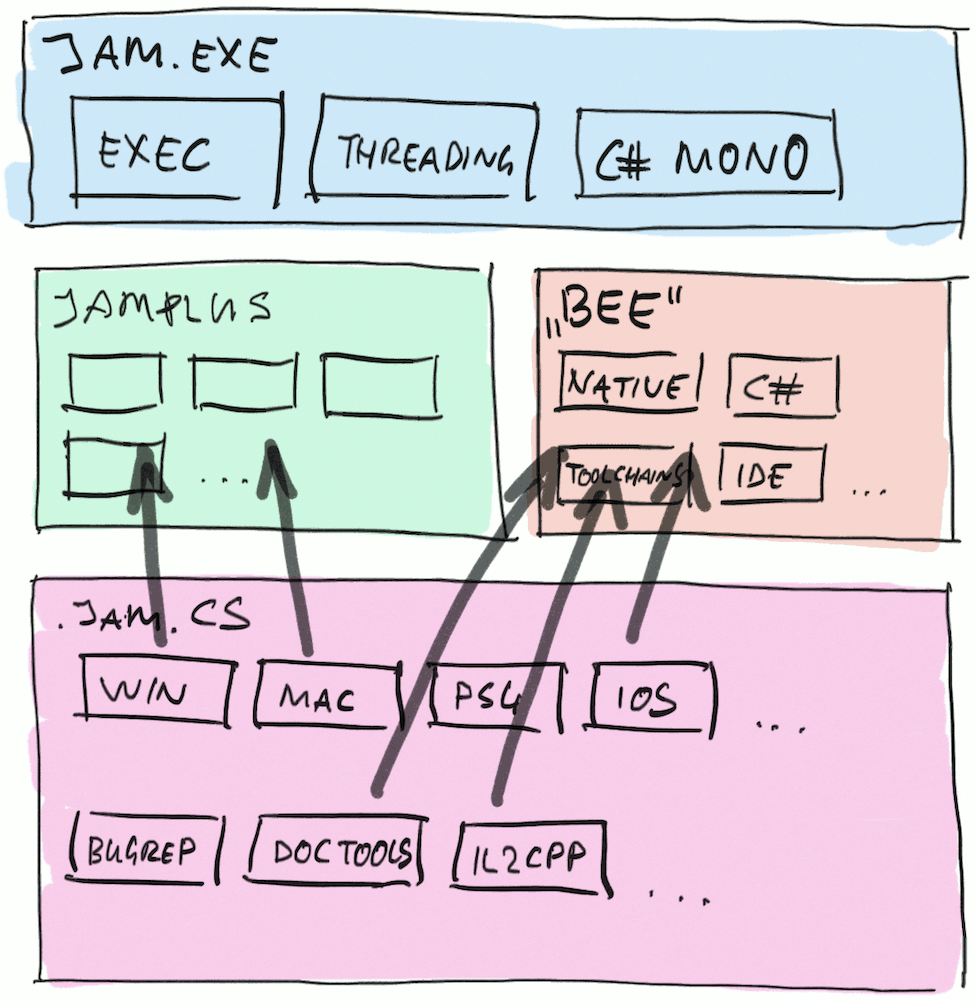 JAM.EXE
EXEC
THREADING
C# MONO
JAMPLUS
...
„BEE"
NATIVE
C#
TOOLCHAINS
IDE
...
.JAM.CS
WIN
MAC
PS4
IOS
...
BUGREP
DOCTOOLS
IL2CPP
...